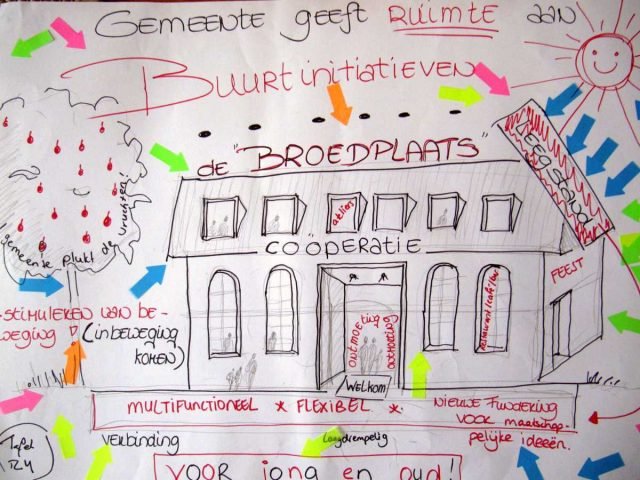 GEMEENTE GEEFT RUIMTE AAN
BUURTINITIATIEVEN
de "BROEDPLAATS"
atelier
COÖPERATIE
Gemeente plukt de vruchten!
FEEST
STIMULEREN VAN BE-
WEGING
(IN BEWEGING
KOMEN)
ontmoeting
restaurant/café/bar
WELKOM
MULTIFUNCTIONEEL * FLEXIBEL *
NIEUWE FUNDERING
VOOR maatschap-
pelijke ideeën.
VERBINDING
Laagdrempelig
Tafel
VOOR jong en oud!